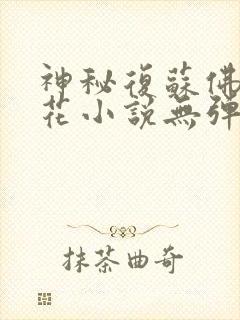 神秘復蘇佛
花小說無彈
抹茶曲奇